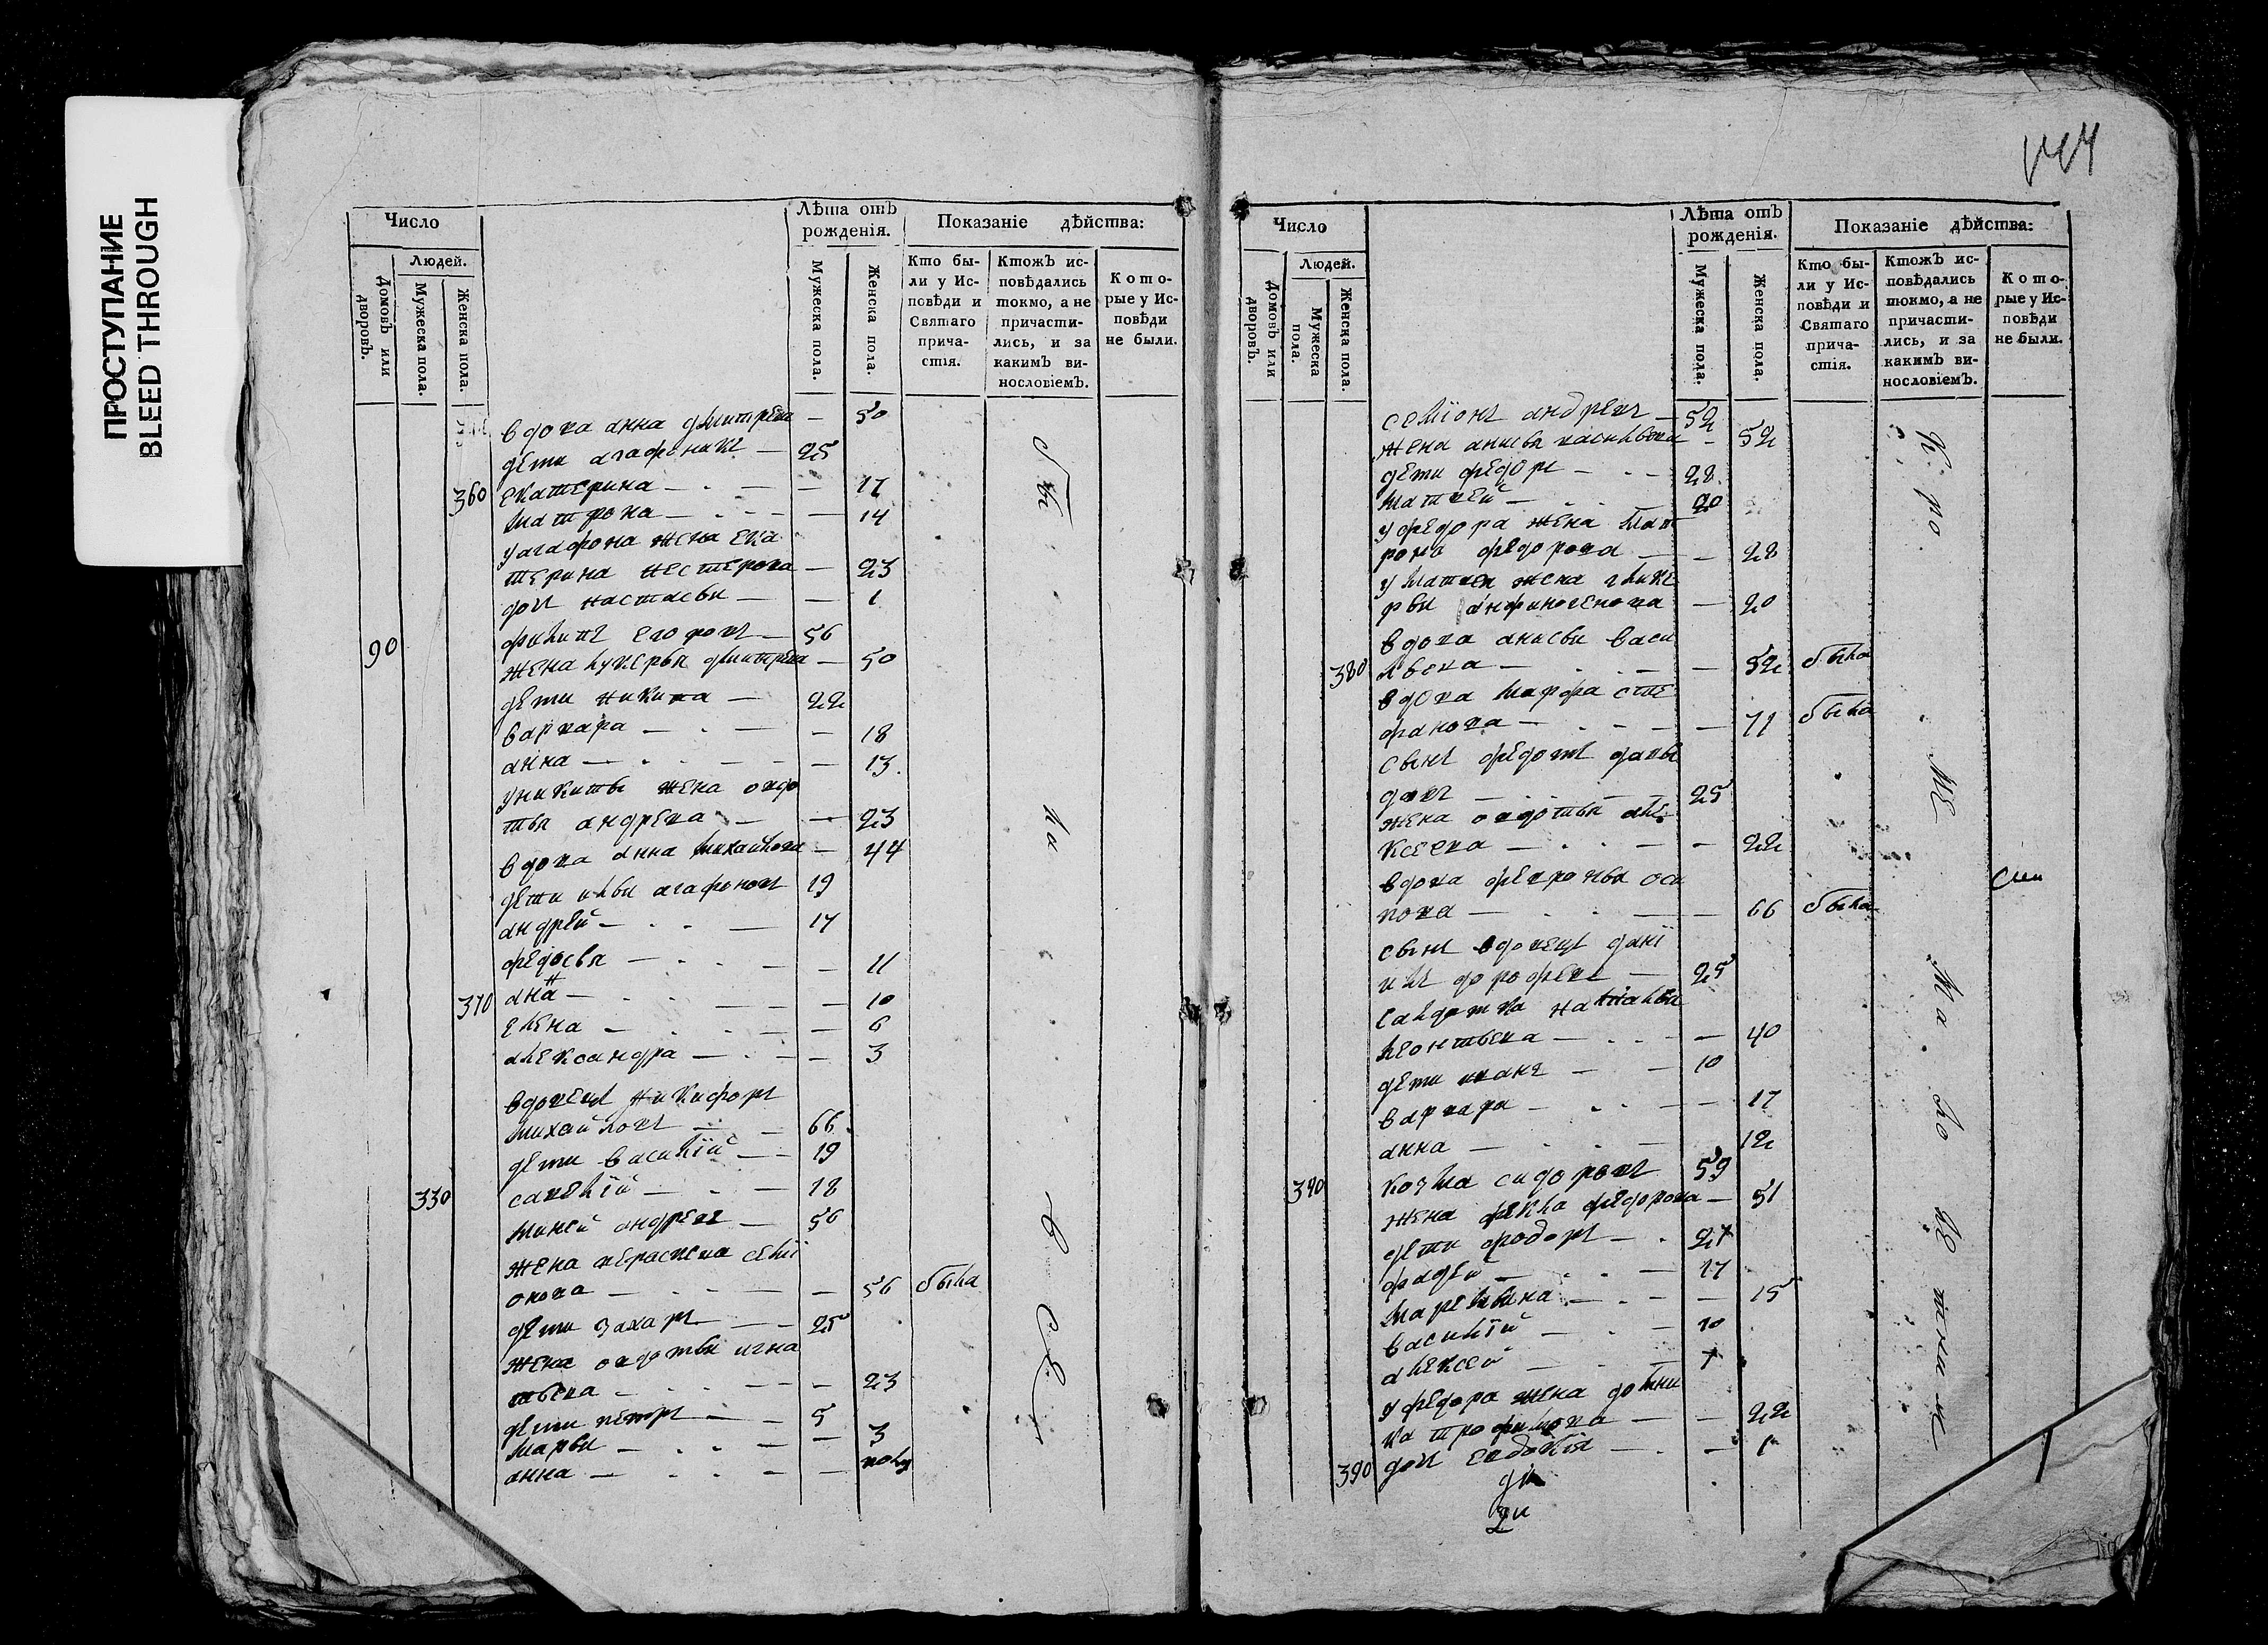 ПРОСТУПАНИЕ
BLEED THROUGH
Число
Людей.
Домовъ или дворовъ.
Мужеска пола.
Женска пола.
Лѣта отъ рожденія.
Мужеска пола.
Женска пола.
Показаніе дѣйства:
Кто были у Исповѣди и Святаго причастія.
Ктожъ исповѣдались токмо, а не причастились, и за какимъ винословіемъ.
Которые у Исповѣди не были.
вдова анна дмитрева — 50
дети агафоникъ — 25
360 екатерина — 17
матрона — 14
уагафона жена ека
терина нестерова — 23
дочь настасья — 1
90 филипъ егоровъ — 56
жена лукерья дмитрева — 50
дети никита — 22
варвара — 18
анна — 13
уникиты жена овдо
тья андрева — 23
вдова анна михайлова — 44
дети илья агафоновъ 19
андрей — 17
федосья — 11
370 анна — 10
елена — 6
александра — 3
вдовецъ никифоръ
михайловъ — 66
дети василій — 19
330 савелій — 18
миней андревъ — 56
жена парасковья семі
онова — 56 была
дети захаръ — 25
жена овдотья игна
тьева — 23
дети петръ — 5
марья — 3
анна — полу
Число
Людей.
Домовъ или дворовъ.
Мужеска пола.
Женска пола.
Лѣта отъ рожденія.
Мужеска пола.
Женска пола.
Показаніе дѣйства:
Кто были у Исповѣди и Святаго причастія.
Ктожъ исповѣдались токмо, а не причастились, и за какимъ винословіемъ.
Которые у Исповѣди не были.
семіонъ андревъ — 52
жена анисья васильева — 52
дети федоръ — 28
матвей — 20
уфедора жена мат
рона федорова — 28
у матвея жена глике
рья анфиногенова — 20
вдова анисья васи
380 льева — 52 была
вдова марфа сте
фанова — 71 была
сынъ федотъ давы
довъ — 25
жена овдотья але
ксеева — 22
вдова февронья оси
пова — 66 была
сынъ вдовецъ дані
илъ дорофеевъ — 25
салдатка наталья
леонтьева — 40
дети иванъ — 10
варвара — 17
анна — 12
340 козма сидоровъ 59
жена фекла федорова — 51
дети федоръ — 27
фадей — 17
маремьяна — 15
василій — 10
алексей — 7
уфедора жена домни
ка трофимова — 22
390 дочь евдокія — 1